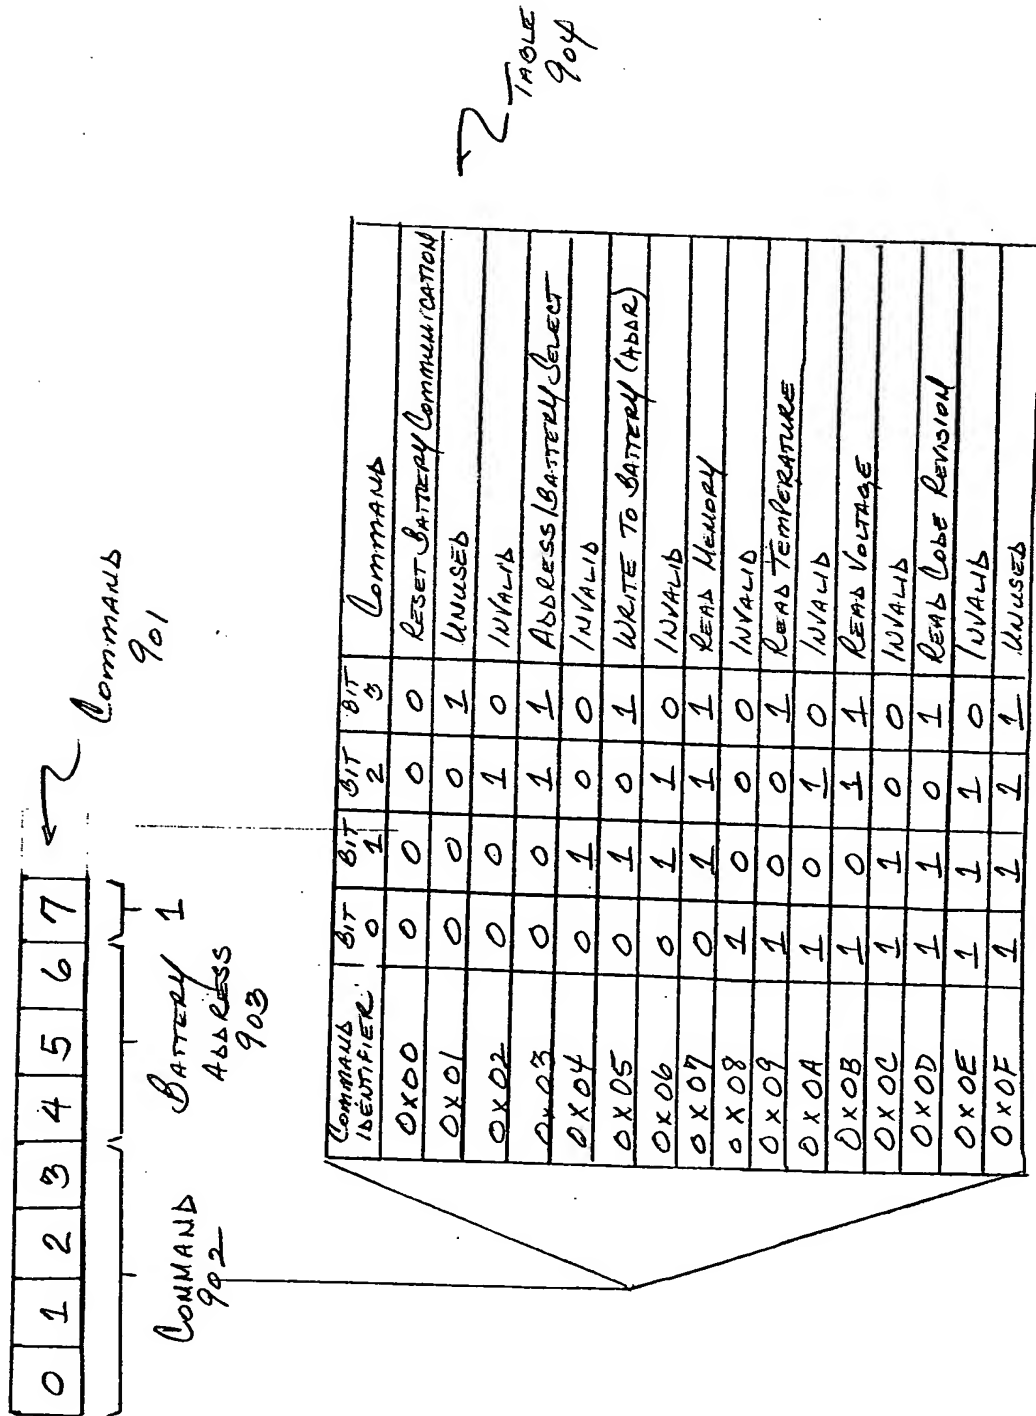 0 1 2 3 4 5 6 7
COMMAND
901
COMMAND
902
BATTERY
ADDRESS
903
1
TABLE
904
COMMAND IDENTIFIER BIT 0 BIT 1 BIT 2 BIT 3 COMMAND
0X00 0 0 0 0 RESET BATTERY COMMUNICATION
0X01 0 0 0 1 UNUSED
0X02 0 0 1 0 INVALID
0X03 0 0 1 1 ADDRESS/BATTERY SELECT
0X04 0 1 0 0 INVALID
0X05 0 1 0 1 WRITE TO BATTERY (ADDR)
0X06 0 1 1 0 INVALID
0X07 0 1 1 1 READ MEMORY
0X08 1 0 0 0 INVALID
0X09 1 0 0 1 READ TEMPERATURE
0X0A 1 0 1 0 INVALID
0X0B 1 0 1 1 READ VOLTAGE
0X0C 1 1 0 0 INVALID
0X0D 1 1 0 1 READ CODE REVISION
0X0E 1 1 1 0 INVALID
0X0F 1 1 1 1 UNUSED